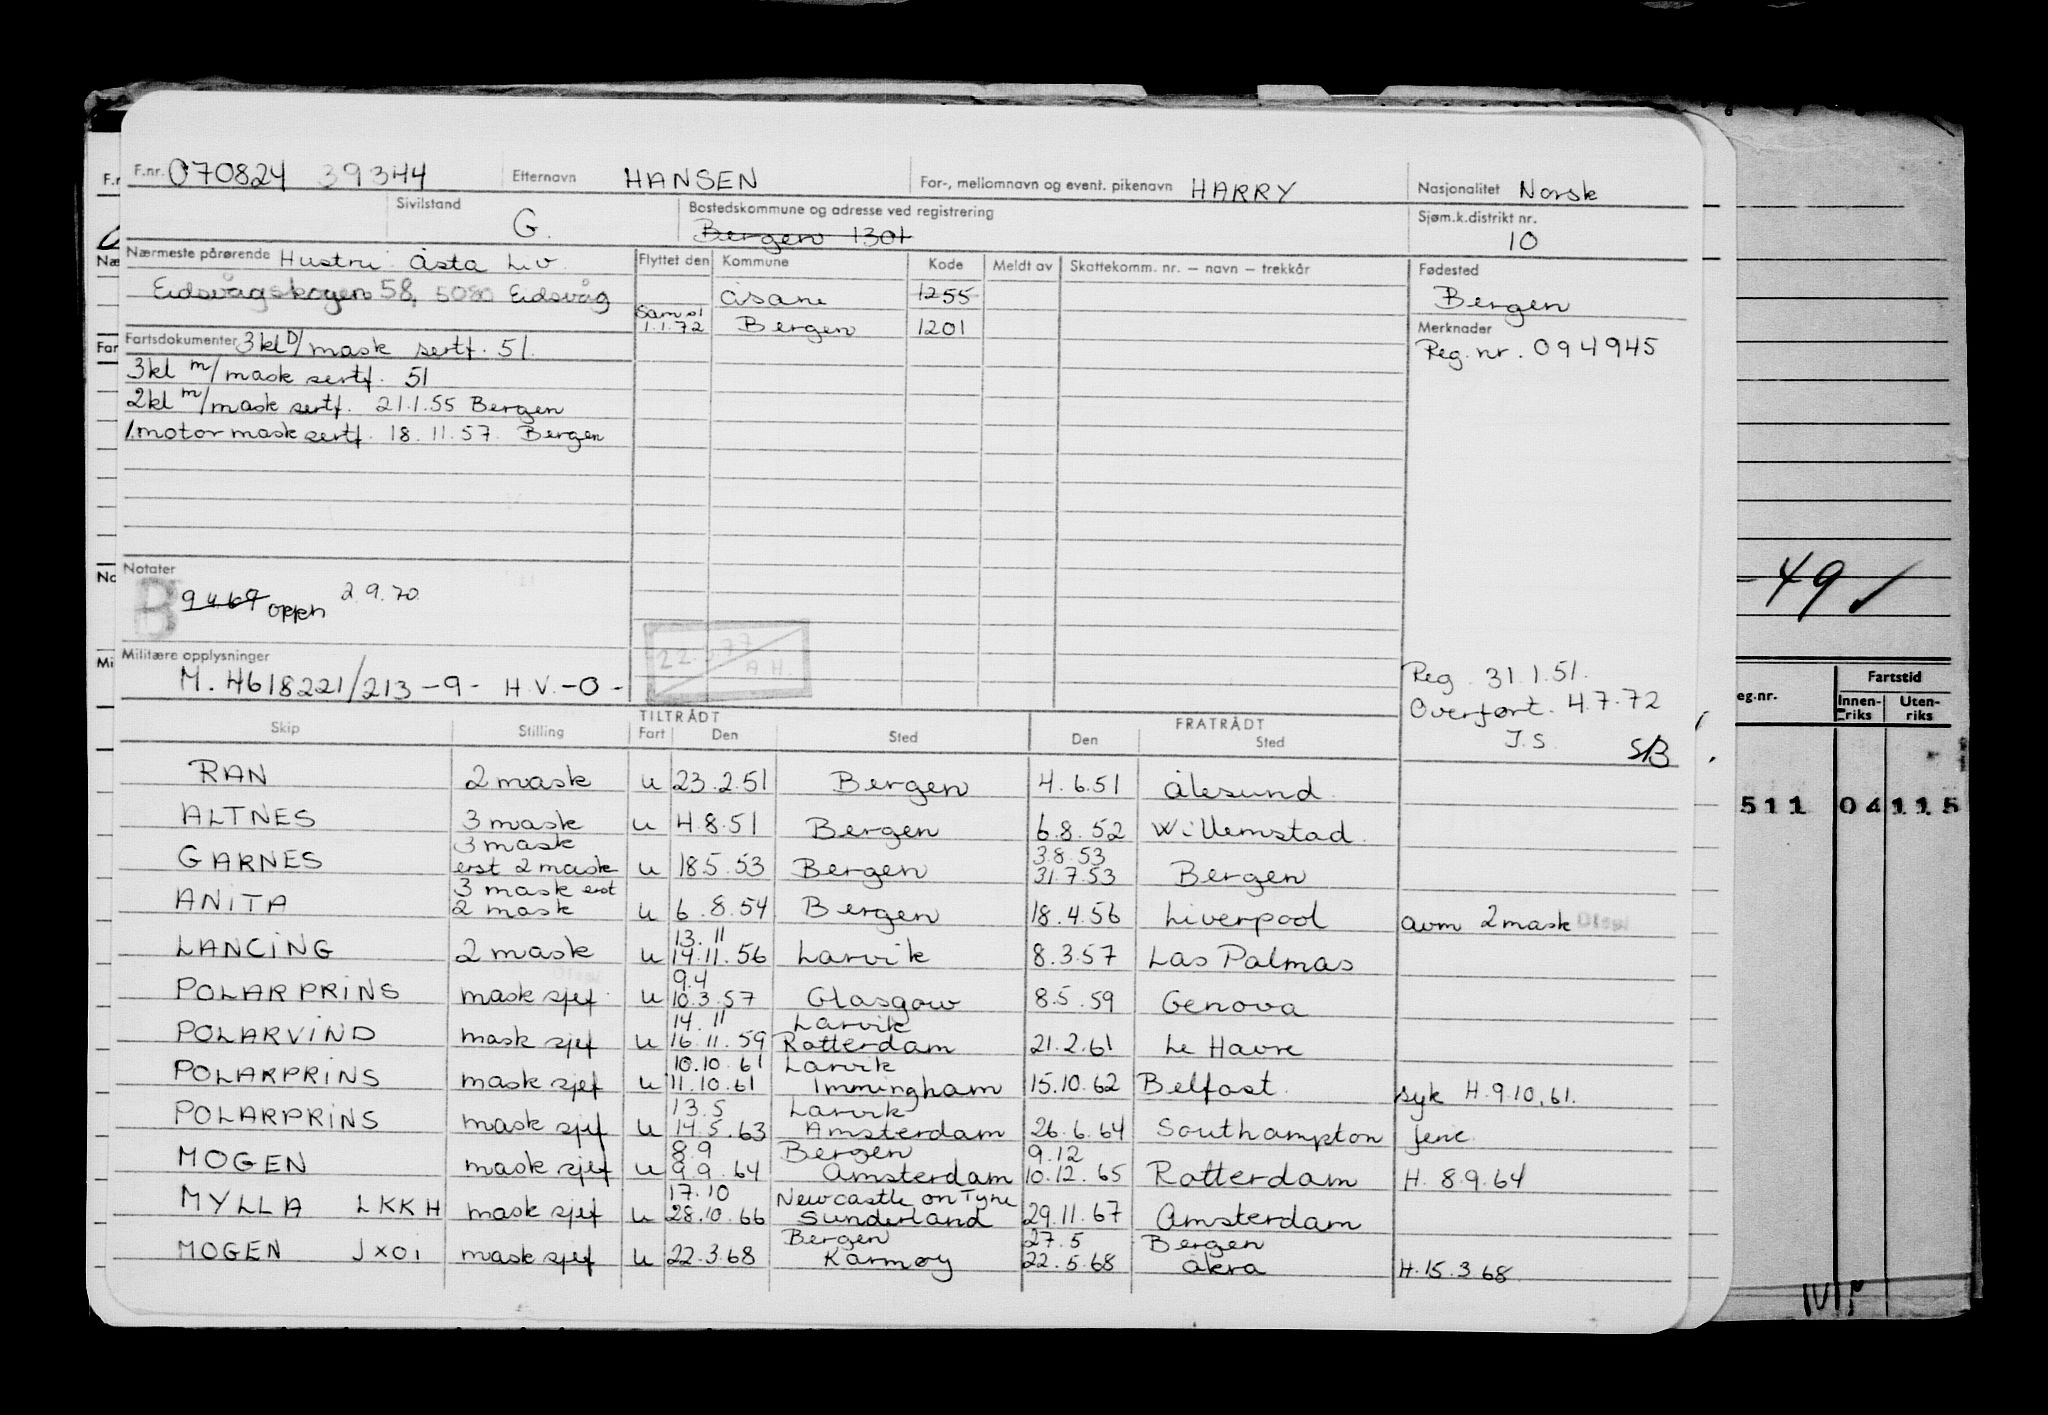 F.nr. 070824 39344 Etternavn HANSEN For-, mellomnavn og event. pikenavn HARRY Nasjonalitet Norsk
Sivilstand G. Bostedskommune og adresse ved registrering Bergen 1301 Sjøm.k.distrikt nr. 10
Nærmeste pårørende Hustru Åsta Liv
Eidsvågskogen 58, 5080 Eidsvåg
Flyttet den Kommune Kode Meldt av Skattekomm. nr. – navn – trekkår
Åsane 1255
Saml 1.1.72 Bergen 1201
Fødested
Bergen
Merknader
Reg. nr. 094945
Fartsdokumenter 3kl D/mask sertf. 51.
3kl m/mask sertf. 51
2kl m/mask sertf. 21.1.55 Bergen
1.motor mask sertf. 18.11.57. Bergen
Notater
B 9469 oppn 2.9.70
Militære opplysninger
M. 4618221/213-9- H.V.-0-
22. .77
A.H.
Reg. 31.1.51.
Overført. 4.7.72
J.S. S/B
TILTRÅDT FRATRÅDT
Skip Stilling Fart Den Sted Den Sted
RAN 2 mask u 23.2.51 Bergen 4.6.51 Ålesund
ALTNES 3 mask u 4.8.51 Bergen 6.8.52 Willemstad
3 mask 3.8.53
GARNES erst 2 mask u 18.5.53 Bergen 31.7.53 Bergen
3 mask erst
ANITA 2 mask u 6.8.54 Bergen 18.4.56 Liverpool avm 2 mask
13.11
LANCING 2 mask u 14.11.56 Larvik 8.3.57 Las Palmas
9.4
POLARPRINS mask sjef u 10.3.57 Glasgow 8.5.59 Genova
14.11 Larvik
POLARVIND mask sjef u 16.11.59 Rotterdam 21.2.61 Le Havre
10.10.61 Larvik
POLARPRINS mask sjef u 11.10.61 Immingham 15.10.62 Belfast syk H.9.10.61.
13.5 Larvik
POLARPRINS mask sjef u 14.5.63 Amsterdam 26.6.64 Southampton ferie
8.9 Bergen 9.12
MOGEN mask sjef u 9.9.64 Amsterdam 10.12.65 Rotterdam H. 8.9.64
17.10 Newcastle on Tyne
MYLLA LKKH mask sjef u 28.10.66 Sunderland 29.11.67 Amsterdam
Bergen 27.5 Bergen
MOGEN JXOI mask sjef u 22.3.68 Karmøy 22.5.68 Åkra H.15.3.68
-49
eg.nr. Fartstid
Innen-riks Uten-riks
511 04 115